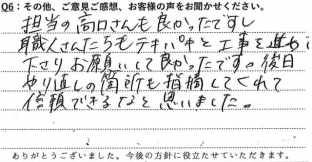 Q6：その他、ご意見ご感想、お客様の声をお聞かせください。
担当の高口さんも良かったですし
職人さんたちもテキパキと工事を進め
下さりお願いして良かったです。後日
やり直しの箇所も指摘してくれて
信頼できるなと思いました。
ありがとうございました。今後の方針に役立たせていただきます。